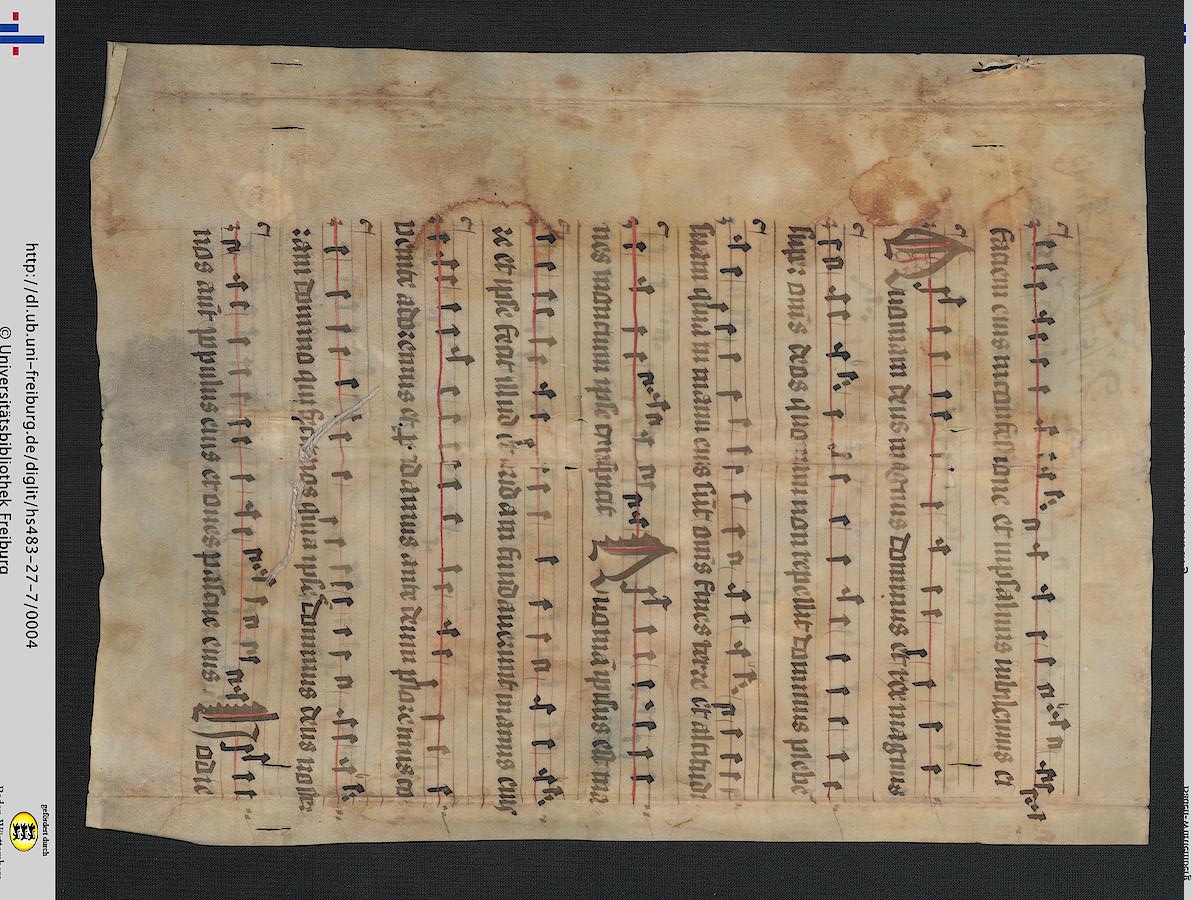 faciem eius in confessione et in psalmis iubilemus ei
Quoniam deus magnus dominus et rex magnus
sup̄ om̄s deos quoniam non repellit dominus plebē
suam quia in manu eius sūt om̄s fines terre et altitudi
nes moncium ipse conspicit Quoniā ipsius est ma
re et ipse fecit illud et aridam fundauerunt manus eiꝰ
venite adoremus et p̄cidamus ante deum ploremus co
ram domino qui fecit nos quia ipse dominus deus noster
nos aūt populus eius et oues pascue eius Hodie
http://dl.ub.uni-freiburg.de/diglit/hs483-27-7/0004
© Universitätsbibliothek Freiburg
gefördert durch